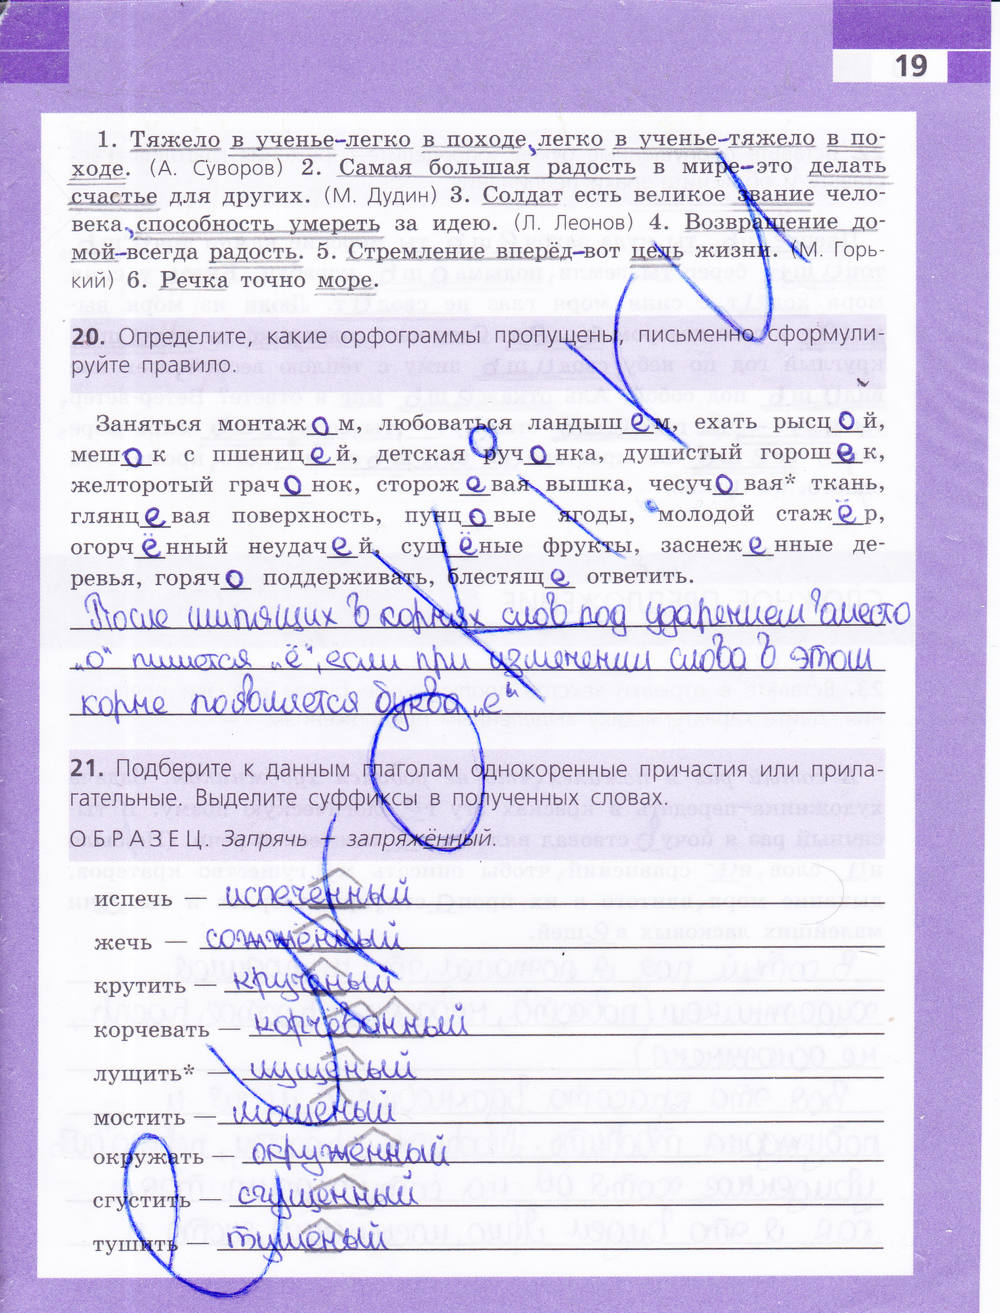 19
1. Тяжело в ученье–легко в походе, легко в ученье–тяжело в по-
ходе. (А. Суворов) 2. Самая большая радость в мире–это делать
счастье для других. (М. Дудин) 3. Солдат есть великое звание чело-
века, способность умереть за идею. (Л. Леонов) 4. Возвращение до-
мой–всегда радость. 5. Стремление вперёд–вот цель жизни. (М. Горь-
кий) 6. Речка точно море.
20. Определите, какие орфограммы пропущены, письменно сформули-
руйте правило.
Заняться монтажом, любоваться ландышем, ехать рысцой,
мешок с пшеницей, детская ручонка, душистый горошек,
желторотый грачонок, сторожевая вышка, чесучовая* ткань,
глянцевая поверхность, пунцовые ягоды, молодой стажёр,
огорчённый неудачей, сушёные фрукты, заснеженные де-
ревья, горячо поддерживать, блестяще ответить.
После шипящих в корнях слов под ударением вместо
„о" пишется „ё", если при изменении слова в этом
корне появляется буква „е"
21. Подберите к данным глаголам однокоренные причастия или прила-
гательные. Выделите суффиксы в полученных словах.
ОБРАЗЕЦ. Запрячь — запряжённый.
испечь — испечённый
жечь — сожжённый
крутить — кручёный
корчевать — корчёванный
лущить* — лущёный
мостить — мощёный
окружать — окружённый
сгустить — сгущённый
тушить — тушёный